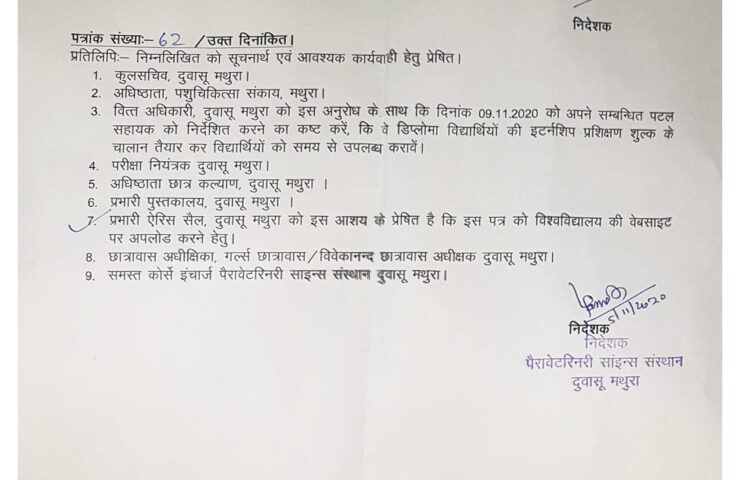 निदेशक
पत्रांक संख्याः– 62 / उक्त दिनांकित।
प्रतिलिपिः– निम्नलिखित को सूचनार्थ एवं आवश्यक कार्यवाही हेतु प्रेषित।
1. कुलसचिव, दुवासू मथुरा।
2. अधिष्ठाता, पशुचिकित्सा संकाय, मथुरा।
3. वित्त अधिकारी, दुवासू मथुरा को इस अनुरोध के साथ कि दिनांक 09.11.2020 को अपने सम्बन्धित पटल
सहायक को निर्देशित करने का कष्ट करें, कि वे डिप्लोमा विद्यार्थियों की इटर्नशिप प्रशिक्षण शुल्क के
चालान तैयार कर विद्यार्थियों को समय से उपलब्ध करावें।
4. परीक्षा नियंत्रक दुवासू मथुरा।
5. अधिष्ठाता छात्र कल्याण, दुवासू मथुरा ।
6. प्रभारी पुस्तकालय, दुवासू मथुरा ।
7. प्रभारी ऐरिस सैल, दुवासू मथुरा को इस आशय के प्रेषित है कि इस पत्र को विश्वविद्यालय की वेबसाइट
पर अपलोड करने हेतु।
8. छात्रावास अधीक्षिका, गर्ल्स छात्रावास/विवेकानन्द छात्रावास अधीक्षक दुवासू मथुरा।
9. समस्त कोर्स इंचार्ज पैरावेटरिनरी साइन्स संस्थान दुवासू मथुरा।
5/11/2020
निदेशक
निदेशक
पैरावेटरिनरी सांइन्स संस्थान
दुवासू मथुरा